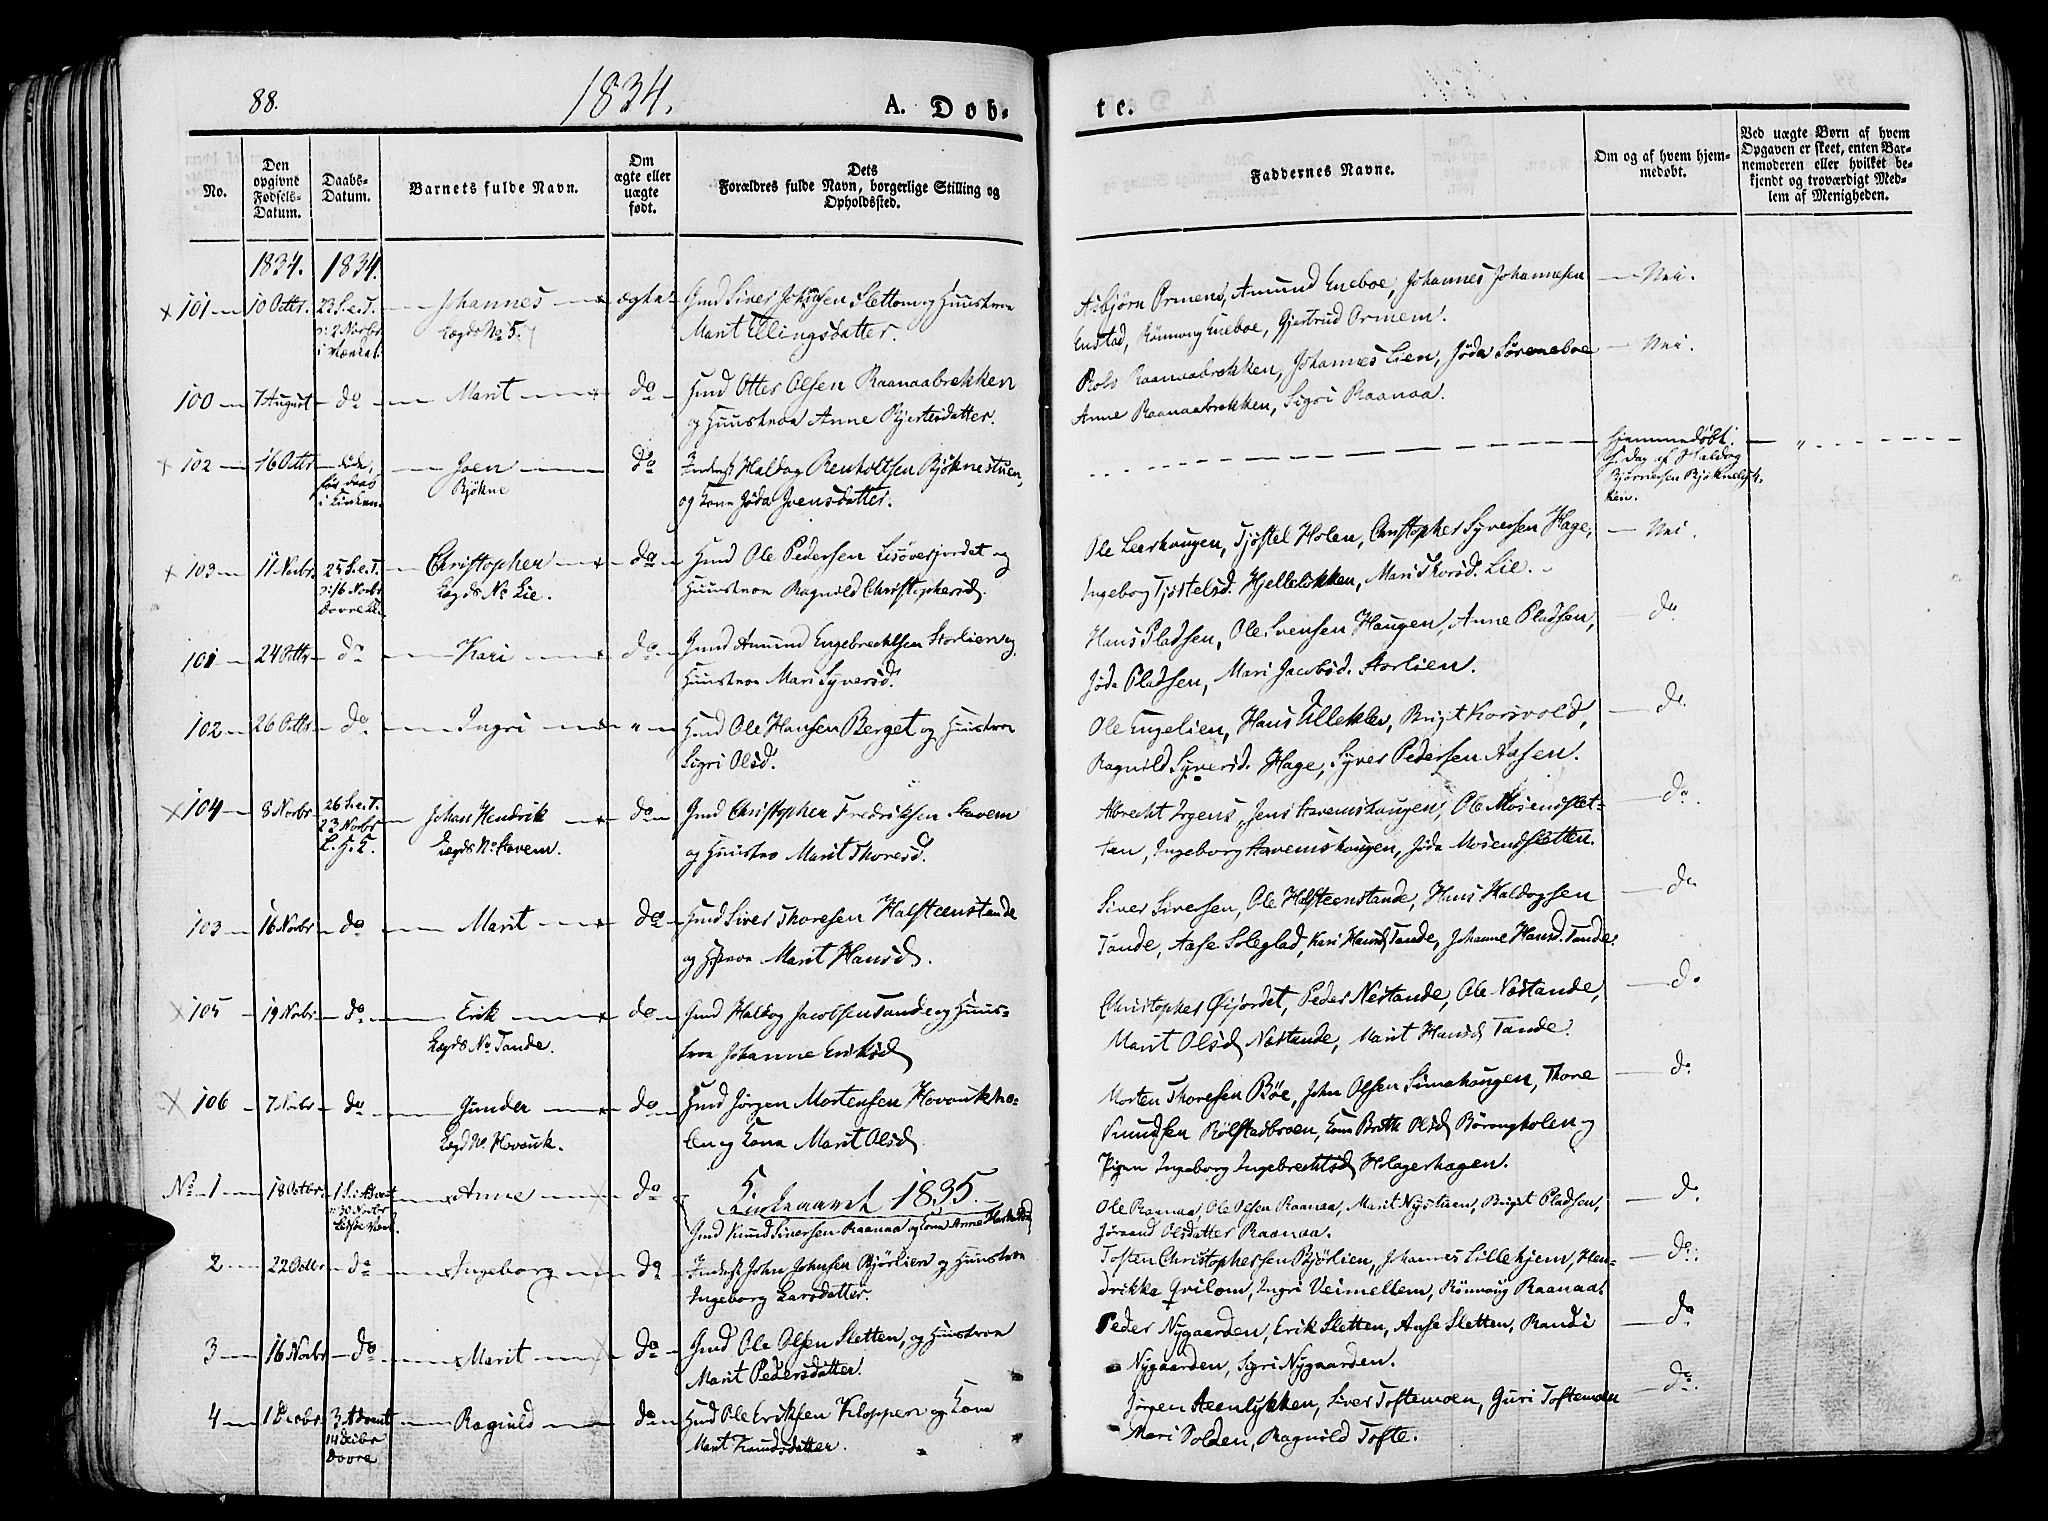 88.
1834.
A. Døb-
te.
No.
Den opgivne Fødsels-Datum.
Daabs-Datum.
Barnets fulde Navn.
Om ægte eller uægte født.
Dets Forældres fulde Navn, borgerlige Stilling og Opholdssted.
Faddernes Navne.
Om og af hvem hjemmedøbt.
Ved uægte Børn af hvem Opgaven er skeet, enten Barnemoderen eller hvilket bekjendt og troværdigt Medlem af Menigheden.
1834. 1834.
101 10 Octbr. 23 S.e.T. Johannes ægte Gmd Siver Johnsen Slettom og Huustroe
2 Novbr Lægds No 5. Marit Ellingsdatter.
Asbjørn Ormem, Amund Eneboe, Johannes Johannesen Nei.
Enstad, Rønnoug Eneboe, Gjertrud Ormem.
100 7 August do Marit do Hmd Otter Olsen Raanaabrekken
og Huustroe Anne Bjertesdatter.
Rolv Raanaabrekken, Johannes Lien, Jøda Søreneboe Nei.
Anne Raanaabrekken, Sigri Raanaa.
102 16 Octbr Joen do Inderst Haldog Renholtsen Bjøknestuen,
i Kirken. Bjøkne og Kone Jøda Joensdatter.
hjemmedøbt
s. Dag af Haldog
Bjørnersen Bjøknelyk-
ken.
103 11 Novbr. 25 S.e.T. Christopher do Hmd Ole Pedersen Lisøverjordet og
16 Novbr Lægds No Lie. Huustroe Ragnild Christophersd.
Dovre K.
Ole Leerhougen, Tjøstel Holen, Christopher Syversen Hage, Nei
Ingeborg Tjøstelsd. Hjelleløkken, Mari Thorsd. Lie.
101 24 Octbr do Kari do Gmd Amund Engebrechtsen Storlien og
Huustroe Mari Syversd.
Hans Pladsen, Ole Svensen Haugen, Anne Pladsen, do
Jøda Pladsen, Mari Jacobsd. Aorlien.
102 26 Octbr do Ingri " Hmd Ole Hansen Berget og Huustroe
Sigri Olsd.
Ole Engelien, Hans Ulleklev, Brigt Korsvold, do
Ragnild Syversd. Hage, Syver Pedersen Aasen.
104 8 Novbr 26 S.e.T. Johan Hendrik do Gmd Christopher Fredriksen Stavem
23 Novbr Lægds No Stavem. og Huustroe Marit Thoresd.
L. H. K.
Albrecht Irgens, Jens Stavemshaugen, Ole Mosenslet- do
ten, Ingeborg Stavemshougen, Jøda Mosendsletten.
103 16 Novbr do Marit do Hmd Siver Thoresen Halsteenstande
og Hstroe Marit Hansd.
Siver Sivesen, Ole Halsteenstande, Hans Haldogsen do
Tande, Aase Soleglad, Kari Hansd Tande, Johanne Hansd. Tande.
105 19 Novbr do Erik do Gmd Haldog Jacobsen Tande og Huus-
Lægds No Tande. troe Johanne Eriksd
Christopher Øijordet, Peder Nestande, Ole Nestande, do
Marit Olsd Nestande, Marit Hansd Tande.
106 7 Novbr do Gunder do Hmd Jørgen Mortensen Hovenkho-
Lægd No Hovenk. len og Kone Marit Olsd
Morten Thoresen Bøe, John Olsen Sinnahougen, Thore do
Knudsen Rolstadbroen, Kone Brith Olsd Børongholen og
Pigen Ingeborg Ingebrechtsd Holagerhagen.
Kirkeaaret 1835.
No 1 18 Octbr. 1 S. i Advent Anne do Gmd Knud Sivertsen Raanaa og Kone Anne
30 Novbr
Ole Raanaa, Ole Olsen Raanaa, Marit Nystuen, Brigit Pladsen, do
Jøraand Olsdatter Raanaa.
2 22 Octbr do Ingeborg do Inderst John Johnsen Bjørlien og Huustroe
Ingeborg Larsdatter.
Tosten Christophersen Bjørlien, Johannes Lillehjem, Hen- do.
drikke Qvilom, Ingri Veimellem, Rønnaug Raanaa.
3 16 Novbr do Marit do Gmd Ole Olsen Sletten, og Huustroe
Marit Pedersdatter.
Peder Nygaarden, Erik Sletten, Aase Sletten, Randi do
Nygaarden, Sigri Nygaarden.
4 1 Decbr 3 Advent Ragnild do Hmd Ole Eriksen Kloppen og Kone
14 Decbr Marit Knudsdatter.
Dovre
Jørgen Steenlykken, Siver Toftemoen, Guri Toftemoen do.
Mari Volden, Ragnild Tofte.